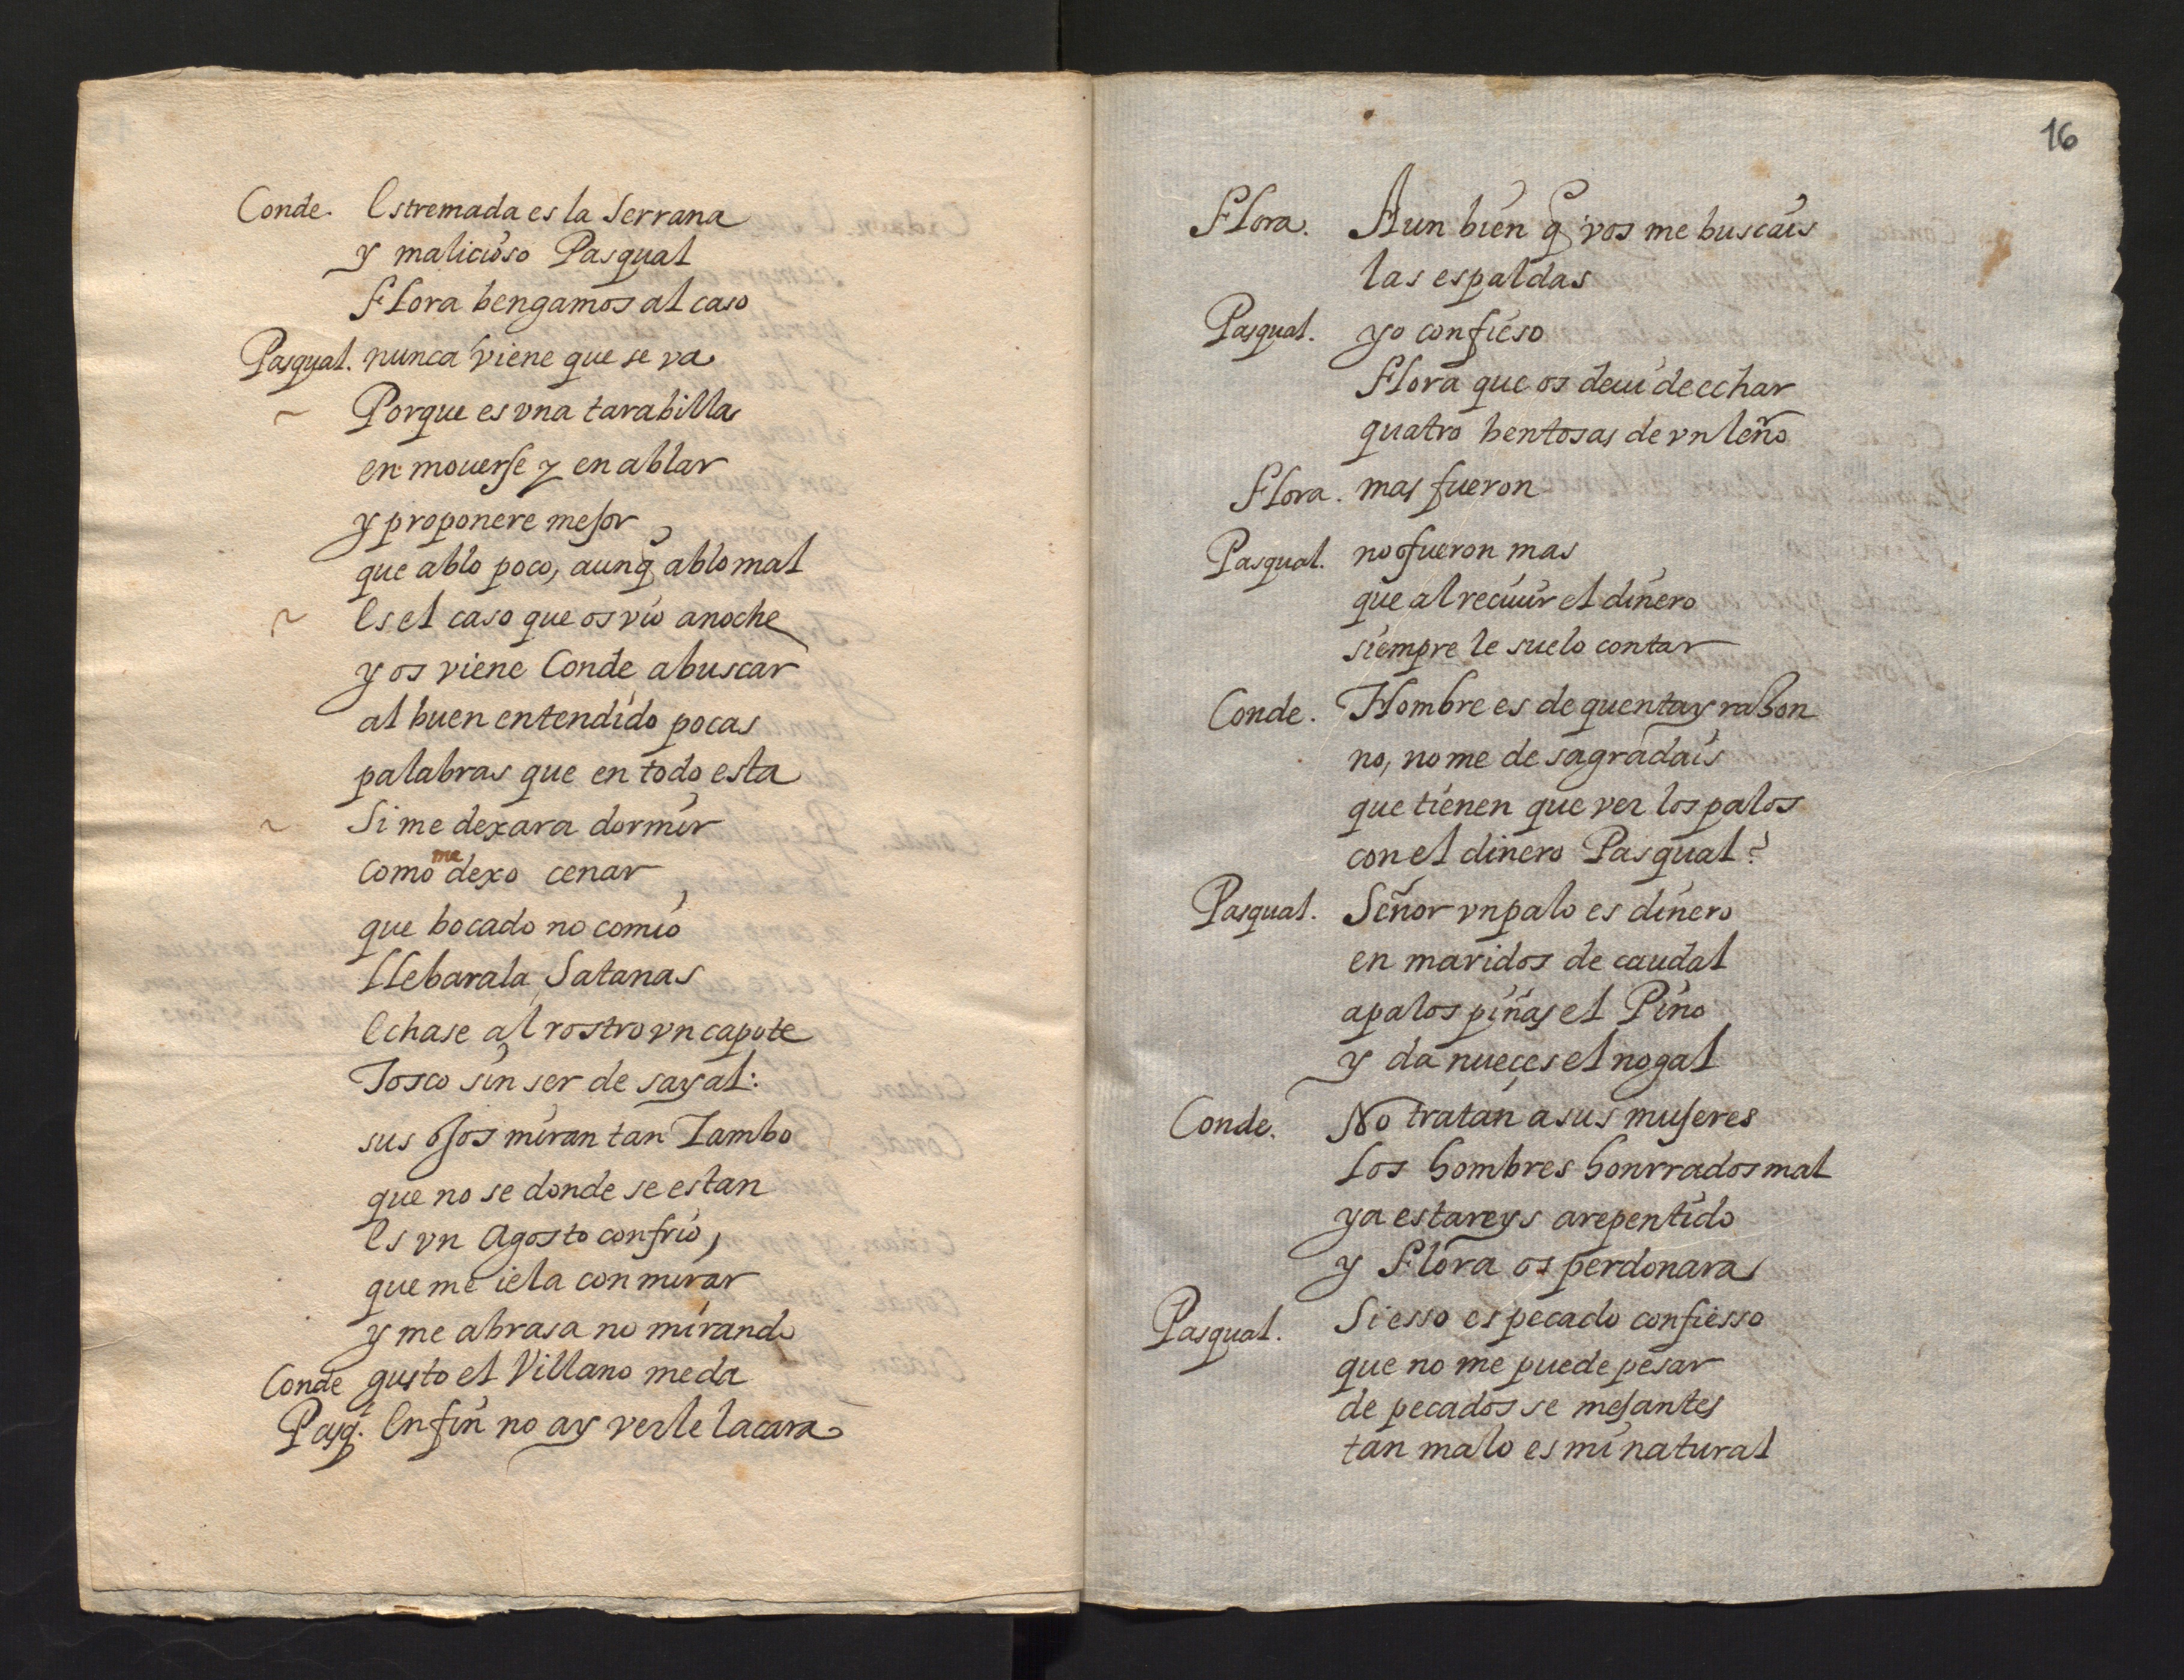 Conde. Estremada es la Serrana
y malicioso Pasqual
Flora bengamos al caso
Pasqual. nunca viene que se va
~ Porque es vna tarabilla
en mouerse y en ablar
y proponere mejor
que ablo poco, aunq̃ ablo mal
~ Es el caso que os vio anoche
y os viene Conde a buscar
al buen entendido pocas
palabras que en todo esta
~ Si me dexara dormir
como me dexo cenar
que bocado no comio
LLebarala Satanas
Echase al rostro vn capote
Tosco sin ser de sayal:
sus ojos miran tan Zambo
que no se donde se estan
Es vn Agosto con frio,
que me iela con mirar
y me abrasa no mirando
Conde gusto el Villano me da
Pasq.l En fin no ay verle la cara
16
Flora. Aun bien q̃ vos me buscais
las espaldas
Pasqual. yo confieso
Flora que os deui de echar
quatro bentosas de vn leño
Flora. mas fueron
Pasqual. no fueron mas
que al reciuir el dinero
siempre le suelo contar
Conde. Hombre es de quenta y razon
no, no me desagradais
que tienen que ver los palos
con el dinero Pasqual?
Pasqual. Señor vn palo es dinero
en maridos de caudal
a palos piñas el Pino
y da nueçes el nogal
Conde. No tratan a sus mujeres
Los hombres honrrados mal
ya estareys arepentido
y Flora os perdonara
Pasqual. Si esso es pecado confiesso
que no me puede pesar
de pecados semejantes
tan malo es mi natural